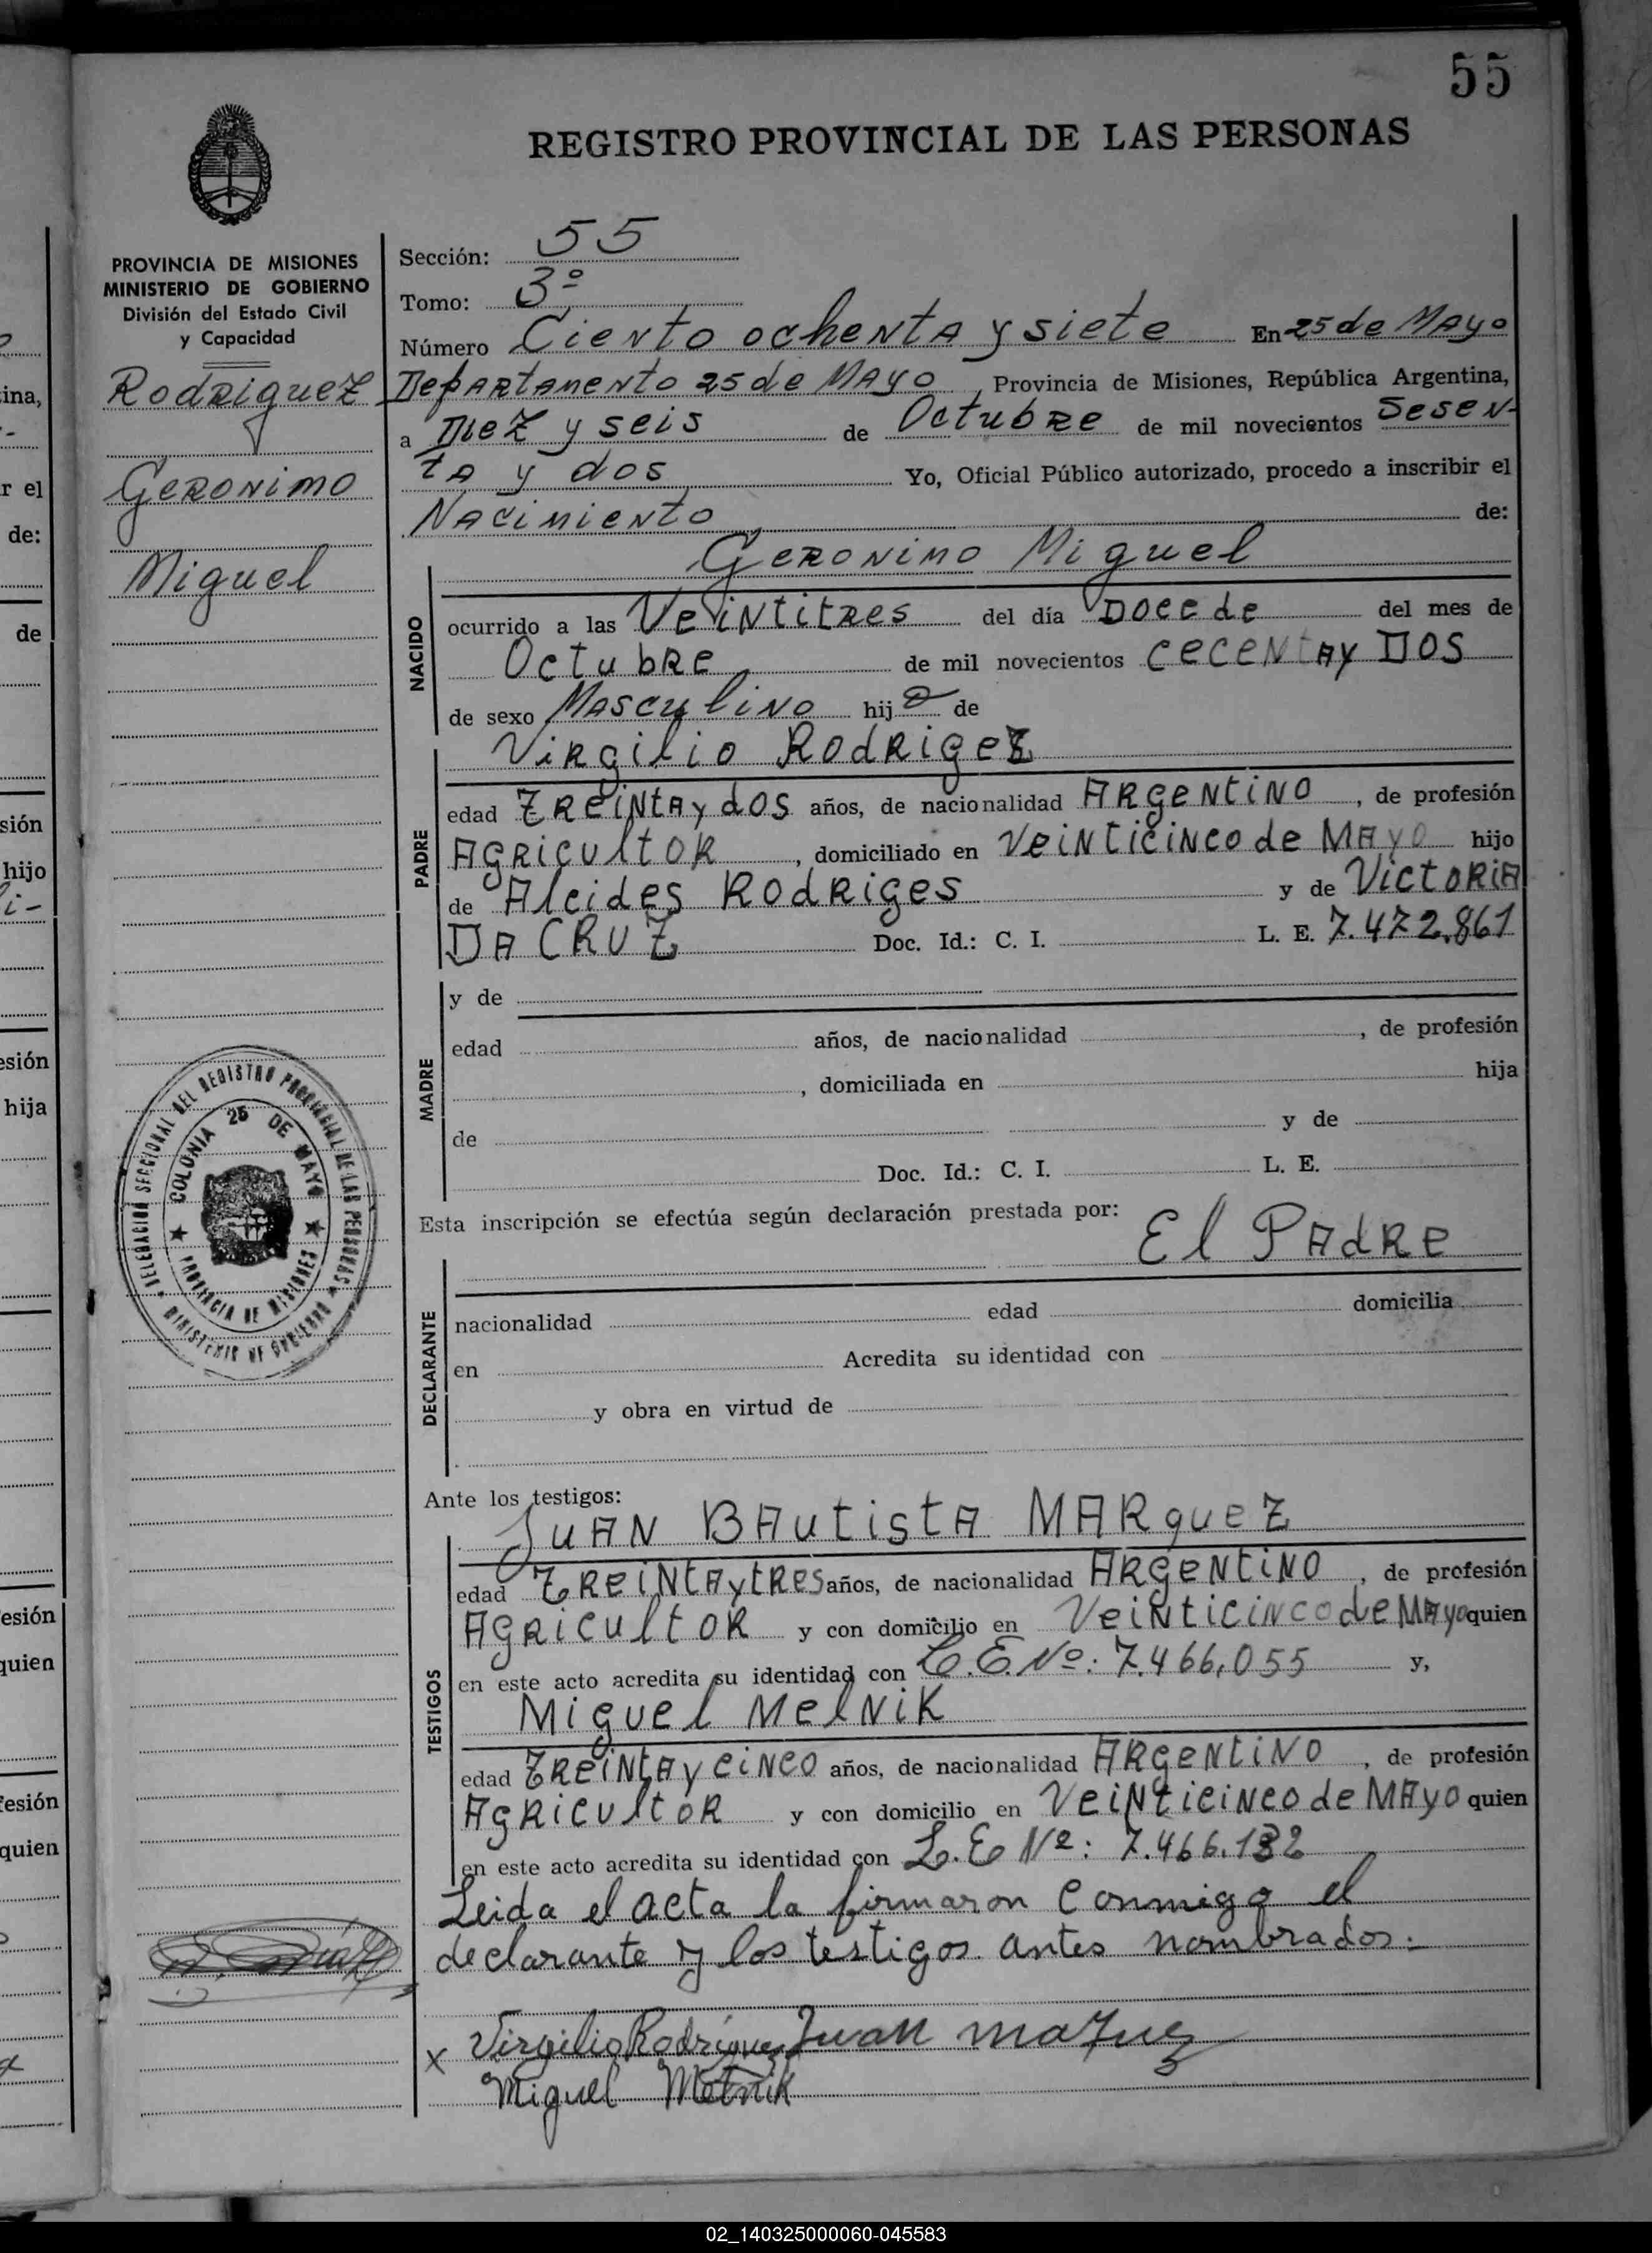 55
REGISTRO PROVINCIAL DE LAS PERSONAS
PROVINCIA DE MISIONES
MINISTERIO DE GOBIERNO
División del Estado Civil
y Capacidad
Rodriguez
Geronimo
Miguel
Sección: 55
Tomo: 3º
Número Ciento ochenta y siete En 25 de Mayo
Departamento 25 de Mayo, Provincia de Misiones, República Argentina,
a Diez y seis de Octubre de mil novecientos Sesen-
ta y dos Yo, Oficial Público autorizado, procedo a inscribir el
Nacimiento de:
Geronimo Miguel
NACIDO
ocurrido a las Veintitres del día Doce de del mes de
Octubre de mil novecientos cecentay Dos
de sexo Masculino hijo de
Virgilio Rodrigez
PADRE
edad Treintay dos años, de nacionalidad Argentino, de profesión
Agricultor, domiciliado en Veinticinco de Mayo hijo
de Alcides Rodriges y de Victoria
Da Cruz Doc. Id.: C. I. L. E. 7.472.861
MADRE
y de
edad años, de nacionalidad , de profesión
, domiciliada en hija
de y de
Doc. Id.: C. I. L. E.
Esta inscripción se efectúa según declaración prestada por:
El Padre
DECLARANTE
nacionalidad edad domicilia
en Acredita su identidad con
y obra en virtud de
Ante los testigos:
Juan Bautista Marquez
TESTIGOS
edad Treintaytres años, de nacionalidad Argentino, de profesión
Agricultor y con domicilio en Veinticinco de Mayo quien
en este acto acredita su identidad con L.E.Nº: 7.466,055 y,
Miguel Melnik
edad Treintay cinco años, de nacionalidad Argentino, de profesión
Agricultor y con domicilio en Veinticinco de Mayo quien
en este acto acredita su identidad con L.E Nº: 7.466.132
Leida el acta la firmaron conmigo el
declarante y los testigos antes nombrados.-
x Virgilio Rodríguez Juan
Miguel Melnik
DELEGACIÓN SECCIONAL DEL REGISTRO PROVINCIAL DE LAS PERSONAS
COLONIA 25 DE MAYO
PROVINCIA DE MISIONES
MINISTERIO DE GOBIERNO
ina,
r el
de:
de
sión
hijo
i-
esión
hija
esión
quien
fesión
quien
02_140325000060-045583